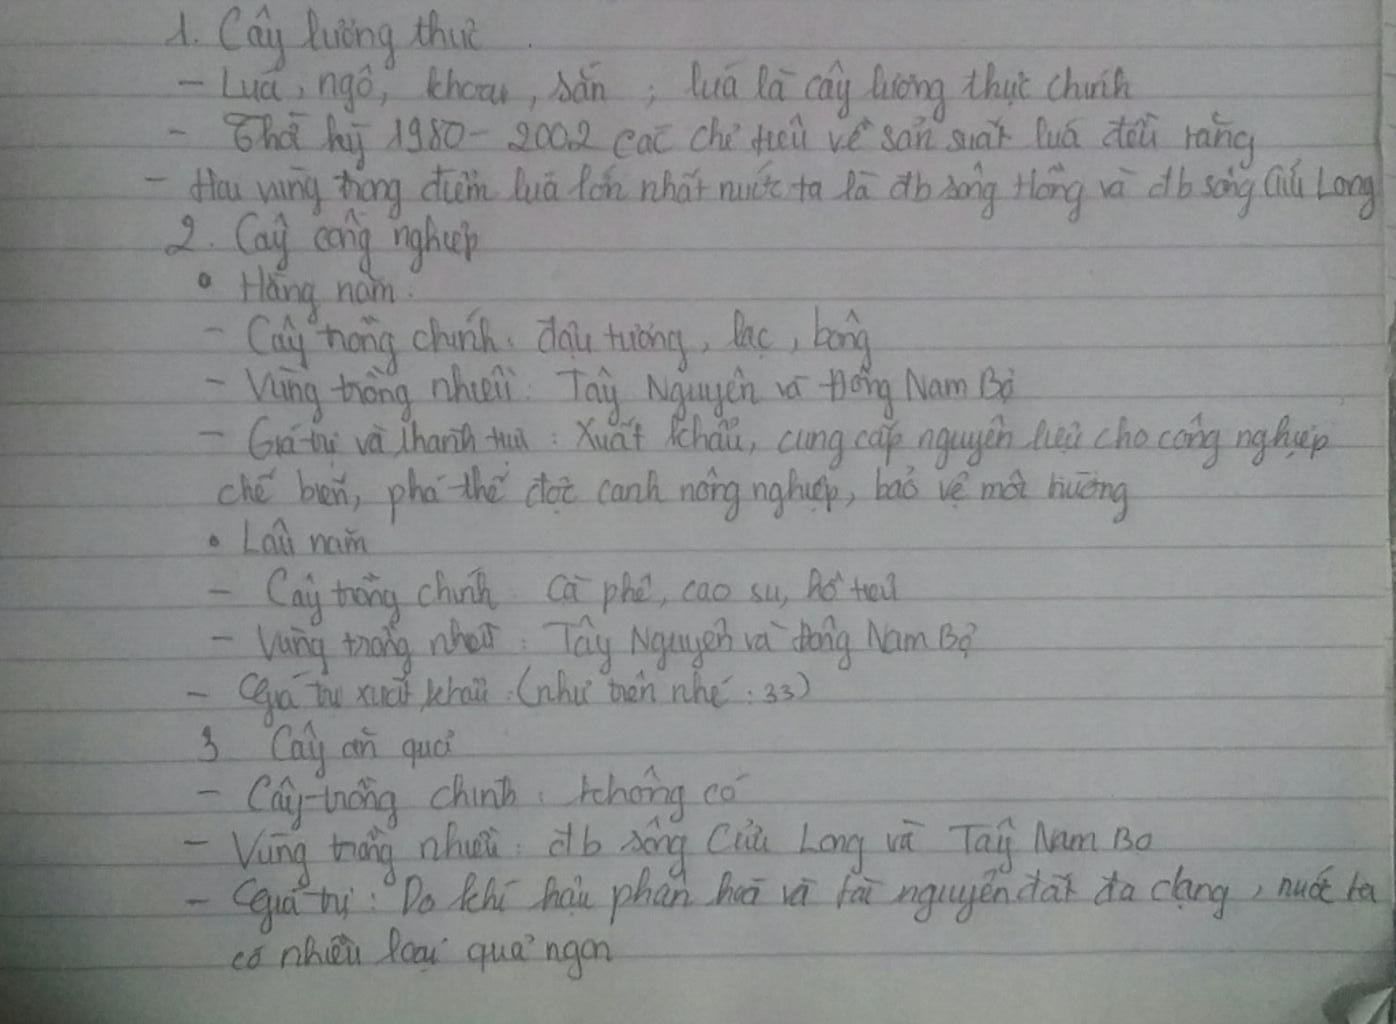 1. Cây lương thực
- Lúa, ngô, khoai, sắn ; lúa là cây lương thực chính
- Thời kỳ 1980 - 2002 các chỉ tiêu về sản suất lúa đều tăng
- Hai vùng trọng điểm lúa lớn nhất nước ta là đb sông Hồng và đb sông Cửu Long
2. Cây công nghiệp
• Hằng năm.
- Cây trồng chính: đậu tương, lạc, bông
- Vùng trồng nhiều: Tây Nguyên và Đông Nam Bộ
- Giá trị và thành tựu: Xuất khẩu, cung cấp nguyên liệu cho công nghiệp
chế biến, phá thế độc canh nông nghiệp, bảo vệ môi trường
• Lâu năm
- Cây trồng chính: Cà phê, cao su, hồ tiêu
- Vùng trồng nhiều: Tây Nguyên và Đông Nam Bộ
- Giá trị xuất khẩu: (như trên nhé :33)
3 Cây ăn quả
- Cây trồng chính: không có
- Vùng trồng nhiều: đb sông Cửu Long và Tây Nam Bo
- Giá trị: Do khí hậu phân hoá và tài nguyên đất đa dạng, nước ta
có nhiều loại quả ngon